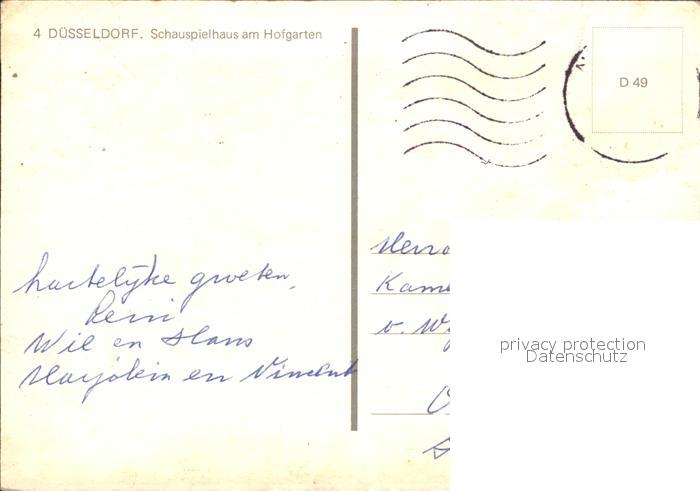 4 DÜSSELDORF. Schauspielhaus am Hofgarten
D 49
hartelijke groeten,
Reini
Wil en Hans
Marjolein en Vincent
Kame
v. W
privacy protection
Datenschutz